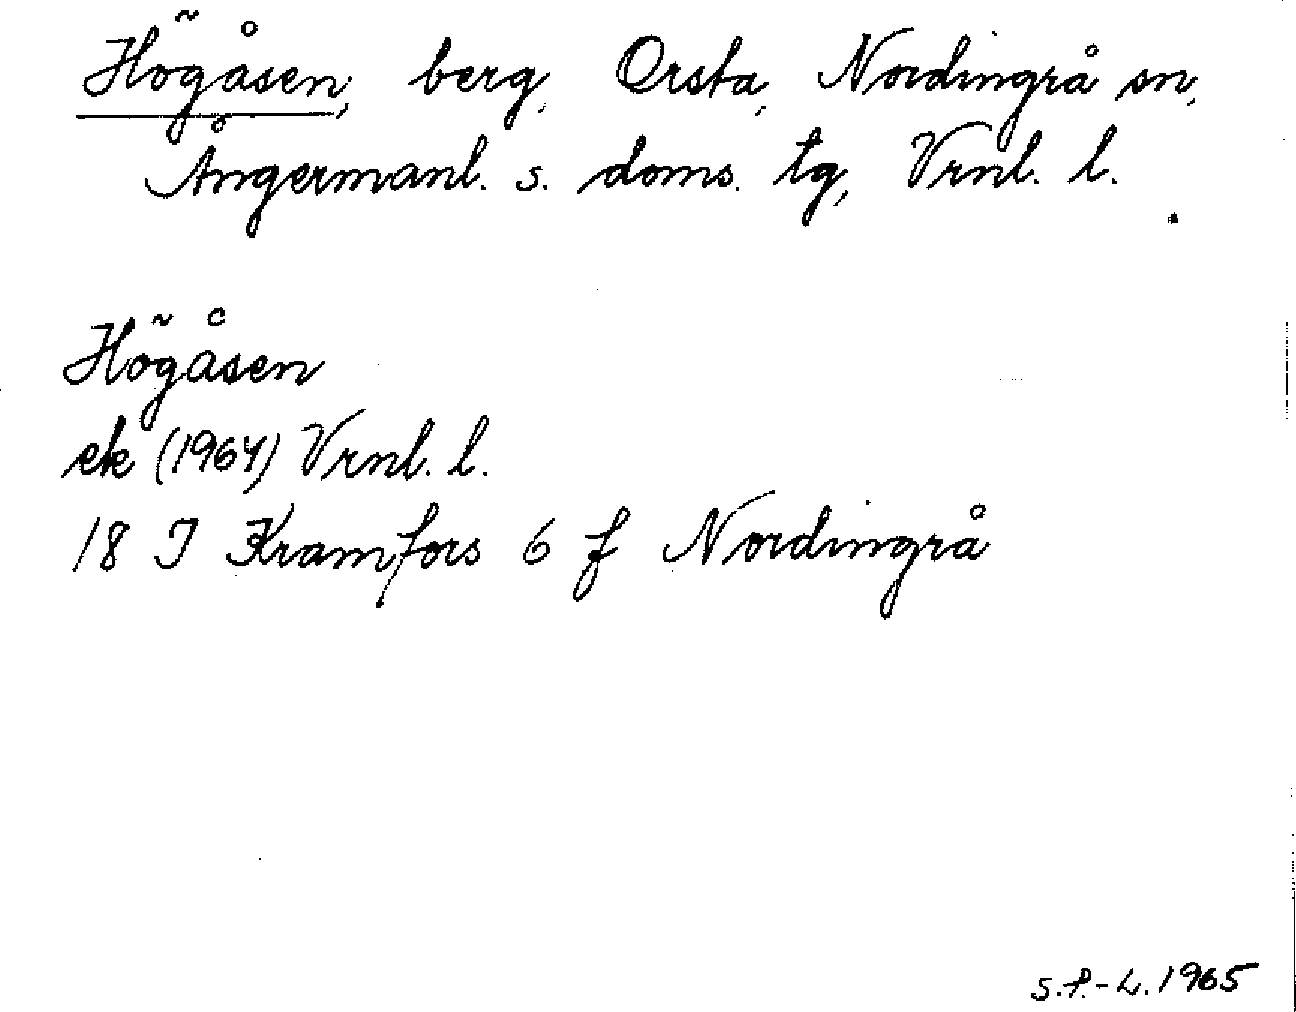 Högåsen, berg, Orsta, Nordingrå sn,
Ångermanl. s. doms. tg, Vrnl. l.
Högåsen
ek (1964) Vrnl. l.
18 I Kramfors 6 f Nordingrå
S.P.-L. 1965